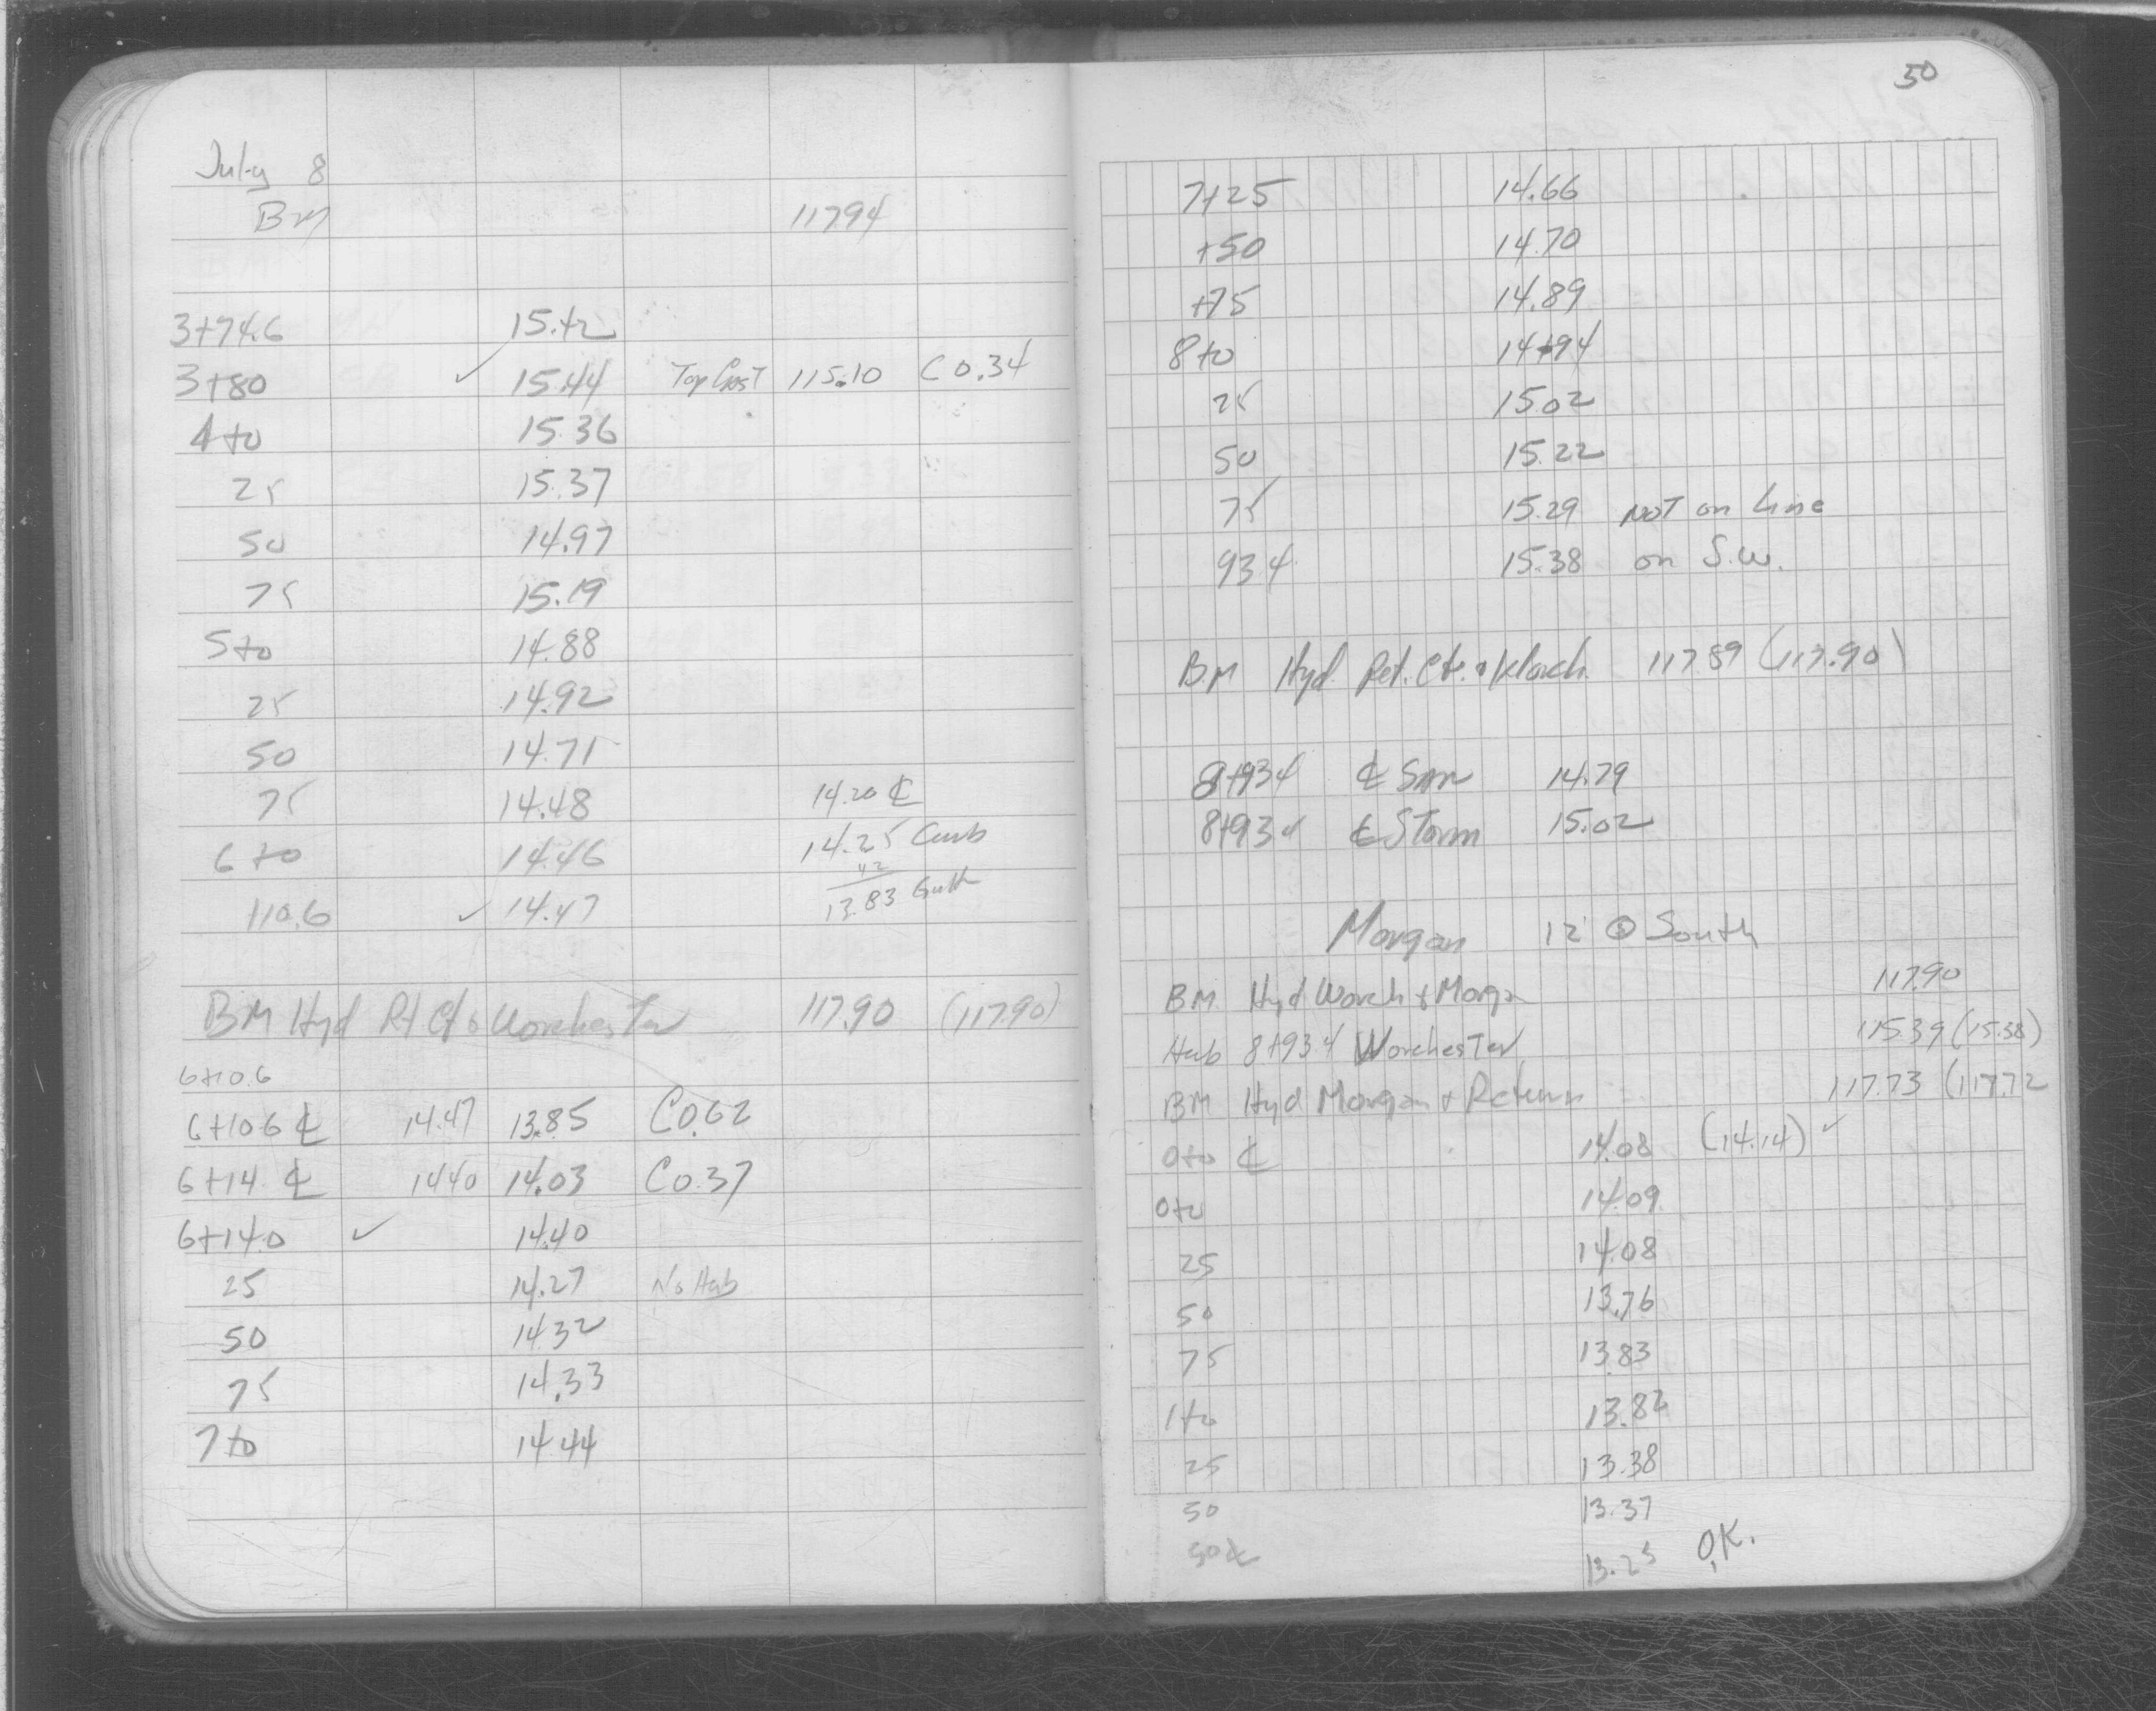 July 8
BM 117.94
3+74.6 15.42
3+80 ✓ 15.44 Top Cast 115.10 C 0.34
4+0 15.36
25 15.37
50 14.97
75 15.19
5+0 14.88
25 14.92
50 14.71
75 14.48 14.20 ℄
6+0 14.46 14.25 Curb
42
110.6 ✓ 14.47 13.83 Gutt
BM Hyd Rt Ct & Worchester 117.90 (117.90)
6+10.6
6+10.6 ℄ 14.47 13.85 C0.62
6+14 ℄ 14.40 14.03 C0.37
6+14.0 ✓ 14.40
25 14.27 No Hub
50 14.32
75 14.33
7+0 14.44
50
7+25 14.66
+50 14.70
+75 14.89
8+0 14+94
25 15.02
50 15.22
75 15.29 NOT on Line
93.4 15.38 on S.W.
BM Hyd. Ret. Ct. & Worch. 117.89 (117.90)
8+93.4 ℄ San 14.79
8+93.4 ℄ Storm 15.02
Morgan 12' @ South
BM Hyd Worch & Morgan 117.90
Hub 8+93.4 Worchester 115.39 (15.38)
BM Hyd Morgan & Return 117.73 (117.72
0+0 ℄ 14.08 (14.14) ✓
0+0 14.09
25 14.08
50 13.76
75 13.83
1+0 13.82
25 13.38
50 13.37
50 ℄ 13.25 O.K.